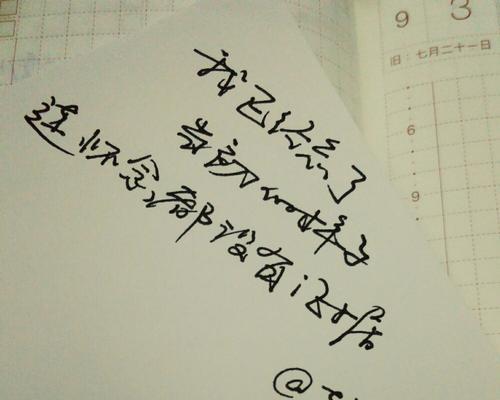 9 3
旧：七月二十一日
6
9
我已经忘了
当初的样子
连怀念都没有证据
@